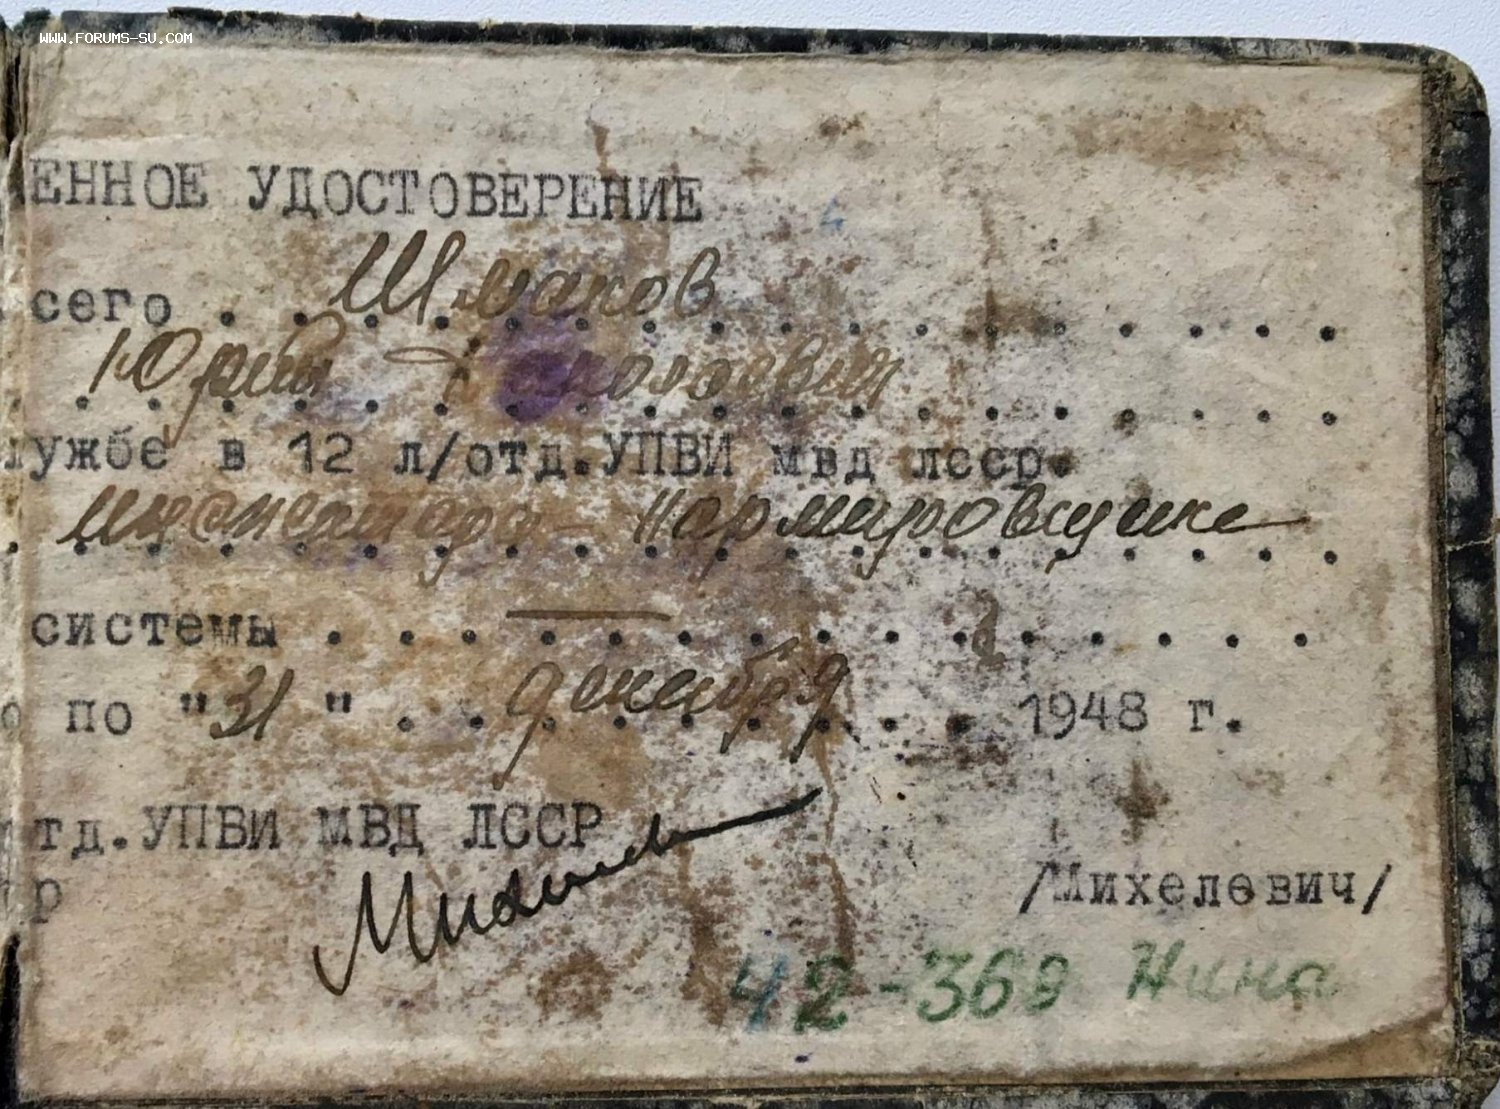 WWW.FORUMS-SU.COM
ЕННОЕ УДОСТОВЕРЕНИЕ
сего . . Шмаков . . . . . . . . .
Юрий
лужбе в 12 л/отд.УПВИ мвд лсср.
инженера - нормировщика
системы . . . . . . . . . . . . . . .
о по "31" . . декабря . . 1948 г.
отд.УПВИ МВД ЛССР
ор
/Михелевич/
42-369 Нина